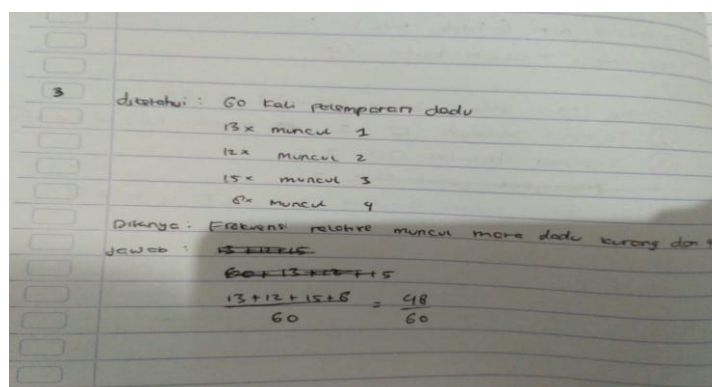 3 diketahui : 60 kali pelemparan dadu
13x muncul 1
12x muncul 2
15x muncul 3
8x muncul 4
Ditanya : Frekuensi relative muncul mata dadu kurang dari
Jawab : 13+12+15
60+13+12++5
13+12+15+8 = 48
60 60